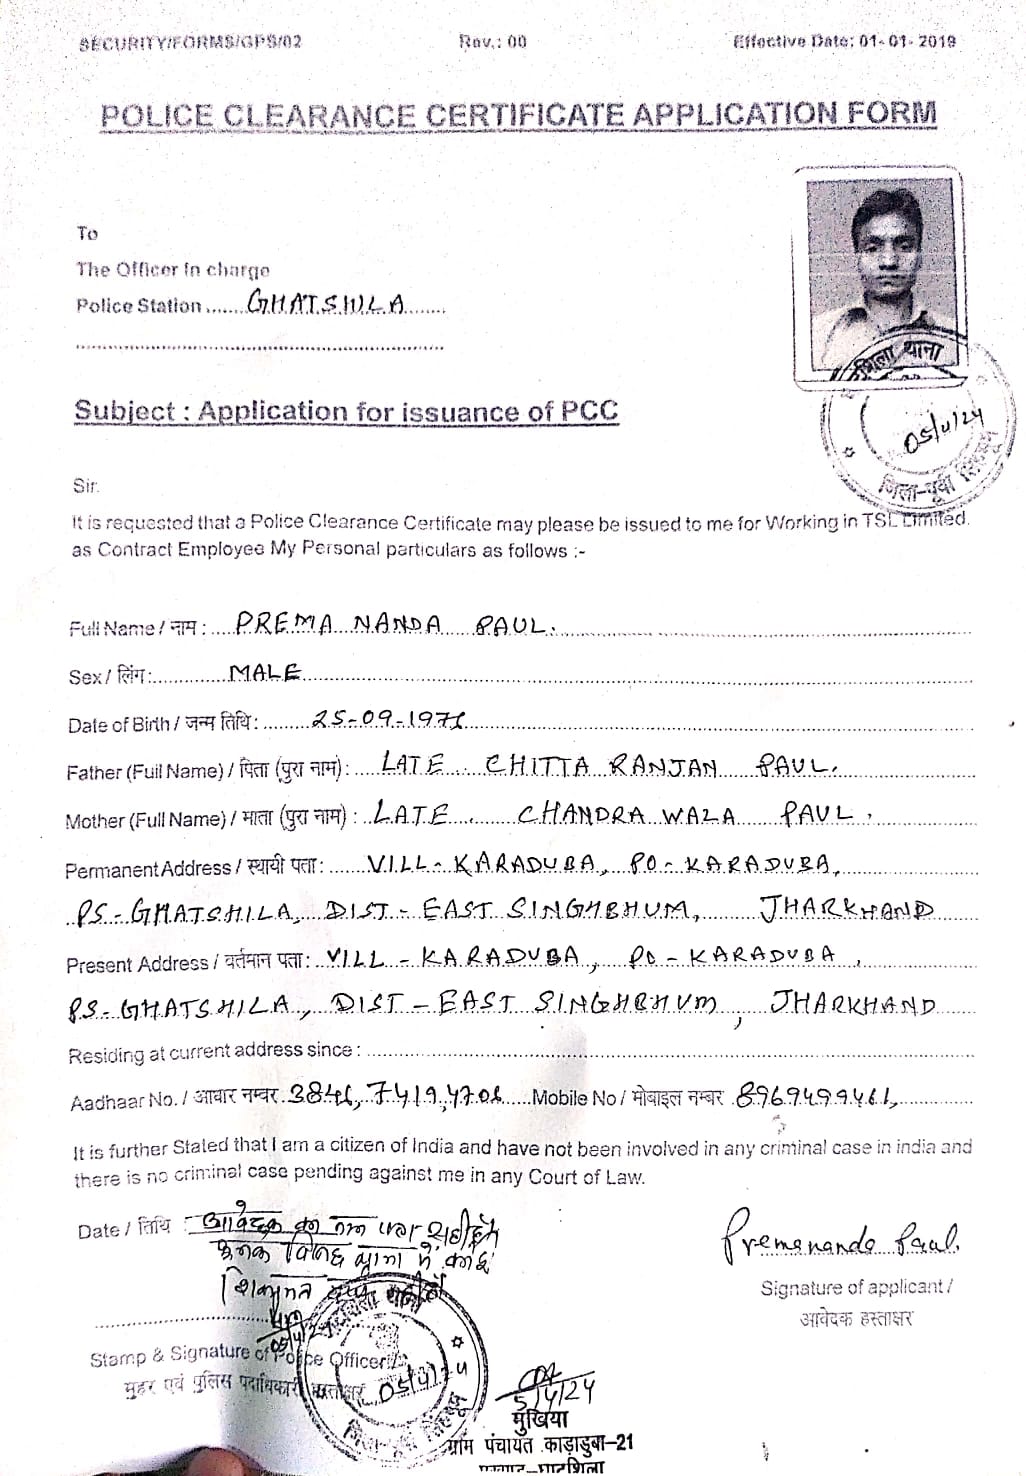 SECURITY/FORMS/GPS/02 Rev.: 00 Effective Date: 01-01-2019
POLICE CLEARANCE CERTIFICATE APPLICATION FORM
To
The Officer in charge
Police Station ....... GHATSHILA ........
शिला थाना
05/4/24
जिला-पूर्वी सिंहभूम
Subject : Application for issuance of PCC
Sir.
It is requested that a Police Clearance Certificate may please be issued to me for Working in TSL Limited.
as Contract Employee My Personal particulars as follows :-
Full Name / नाम : PREMA NANDA PAUL.
Sex / लिंग: MALE
Date of Birth / जन्म तिथि : 25-09-1971
Father (Full Name) / पिता (पुरा नाम) : LATE CHITTA RANJAN PAUL.
Mother (Full Name) / माता (पुरा नाम) : LATE CHANDRA WALA PAUL.
Permanent Address / स्थायी पता : VILL-KARADUBA, PO-KARADUBA,
PS-GHATSHILA, DIST-EAST SINGHBHUM, JHARKHAND
Present Address / वर्तमान पता: VILL-KARADUBA, PO-KARADUBA,
PS-GHATSHILA, DIST-EAST SINGHBHUM, JHARKHAND
Residing at current address since :
Aadhaar No. / आधार नम्बर 3846, 7419, 4706 Mobile No / मोबाइल नम्बर 8969499461,
It is further Stated that I am a citizen of India and have not been involved in any criminal case in india and
there is no criminal case pending against me in any Court of Law.
Date / तिथि : आवेदक का नाम पता सही है
इनके विरुद्ध थाना में कोई
Premananda Paul.
Signature of applicant /
आवेदक हस्ताक्षर
थाना
05/4/24
Stamp & Signature of Police Officer /
मुहर एवं पुलिस पदाधिकारी हस्ताक्षर
05/4/24
5/4/24
मुखिया
ग्राम पंचायत काड़ाडुबा-21
घाटशिला